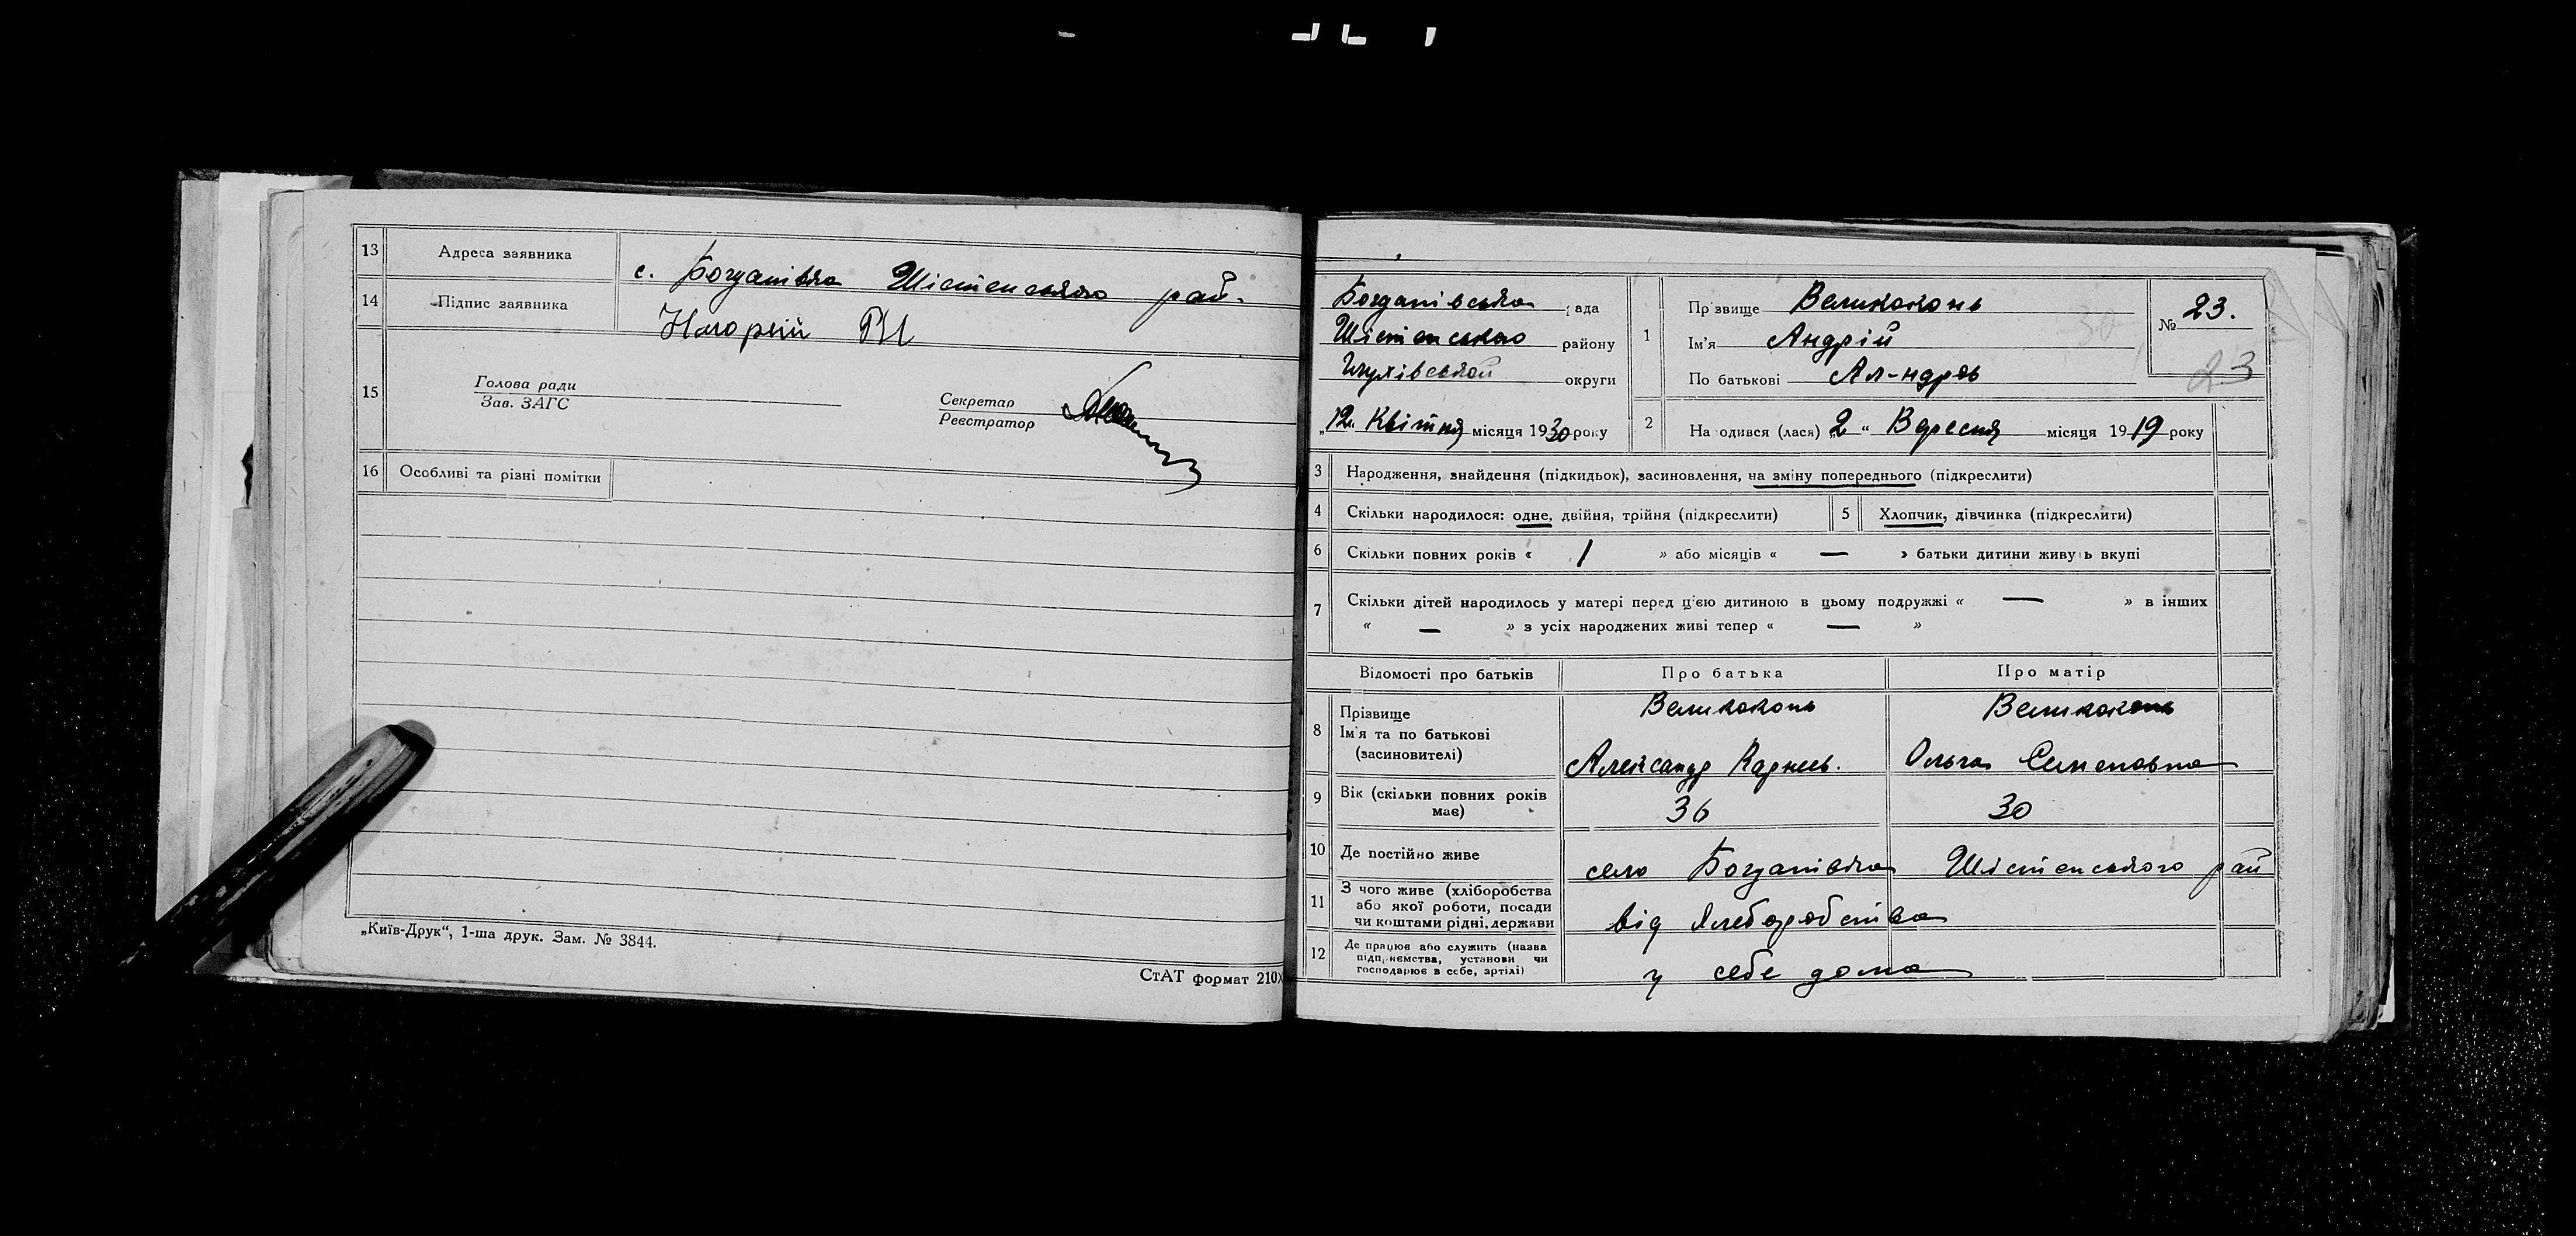 13 Адреса заявника с. Богданівка Шістенського рай.
14 Підпис заявника Нагорний
15 Голова ради
Зав. ЗАГС
Секретар
Реєстратор
16 Особливі та різні помітки
„Київ-Друк“, 1-ша друк. Зам. № 3844.
СтАТ формат 210
Богданівська рада
Шістенського району
Глухівської округи
„12“ Квітня місяця 1930 року
1 Прізвище Великоконь
Ім'я Андрій
По батькові Ал-ндров
№ 23.
23
2 Народився (лася) „2“ Вересня місяця 1919 року
3 Народження, знайдення (підкидьок), засиновлення, на зміну попереднього (підкреслити)
4 Скільки народилося: одне, двійня, трійня (підкреслити) 5 Хлопчик, дівчинка (підкреслити)
6 Скільки повних років « 1 » або місяців « — » батьки дитини живуть вкупі
7 Скільки дітей народилось у матері перед цією дитиною в цьому подружжі « — » в інших
« — » з усіх народжених живі тепер « — »
Відомості про батьків Про батька Про матір
8 Прізвище Великоконь Великоконь
Ім'я та по батькові
(засиновителі) Александр Карнеев. Ольга Семеновна
9 Вік (скільки повних років має) 36 30
10 Де постійно живе село Богданівка Шістенського рай
11 З чого живе (хліборобства
або якої роботи, посади
чи коштами рідні, держави від хлеборобства
12 Де працює або служить (назва
підприємства, установи чи
господарює в себе, артілі) у себе дома